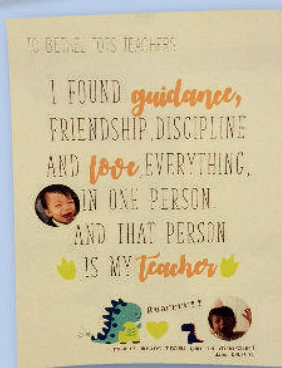 TO BETHEL TOTS TEACHERS
I FOUND guidance,
FRIENDSHIP, DISCIPLINE
AND love, EVERYTHING,
IN ONE PERSON.
AND THAT PERSON
IS MY Teacher
Ruarrrr!!